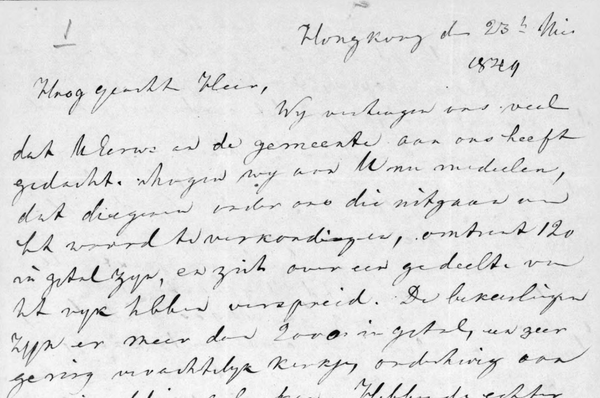 1
Hongkong den 23n Mei
1849
Hoog geacht Heer,
Wij verheugen ons veel
dat UEerw. en de gemeente aan ons heeft
gedacht. Mogen wij aan U nu mededelen,
dat diegenen onder ons die uitgaan om
ht woord te verkondigen, omtrent 120
in getal zijn, en zich over een gedeelte van
ht ryk hebben verspreid. De bekeerlingen
zijn er meer dan 2000 in getal, en zeer
gering verachtelyk kerkje, onderhevig aan
Hebben de echter